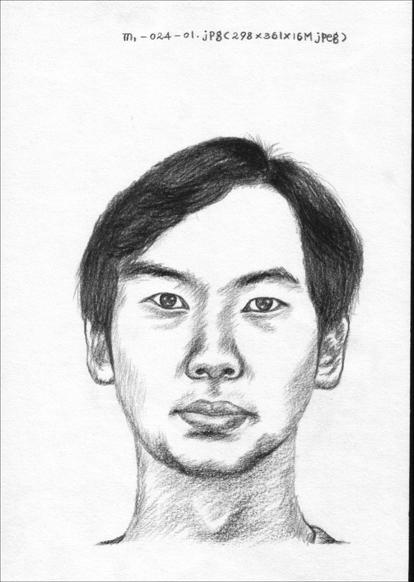 m,-024-01.jpg(298×361×16M jpeg)